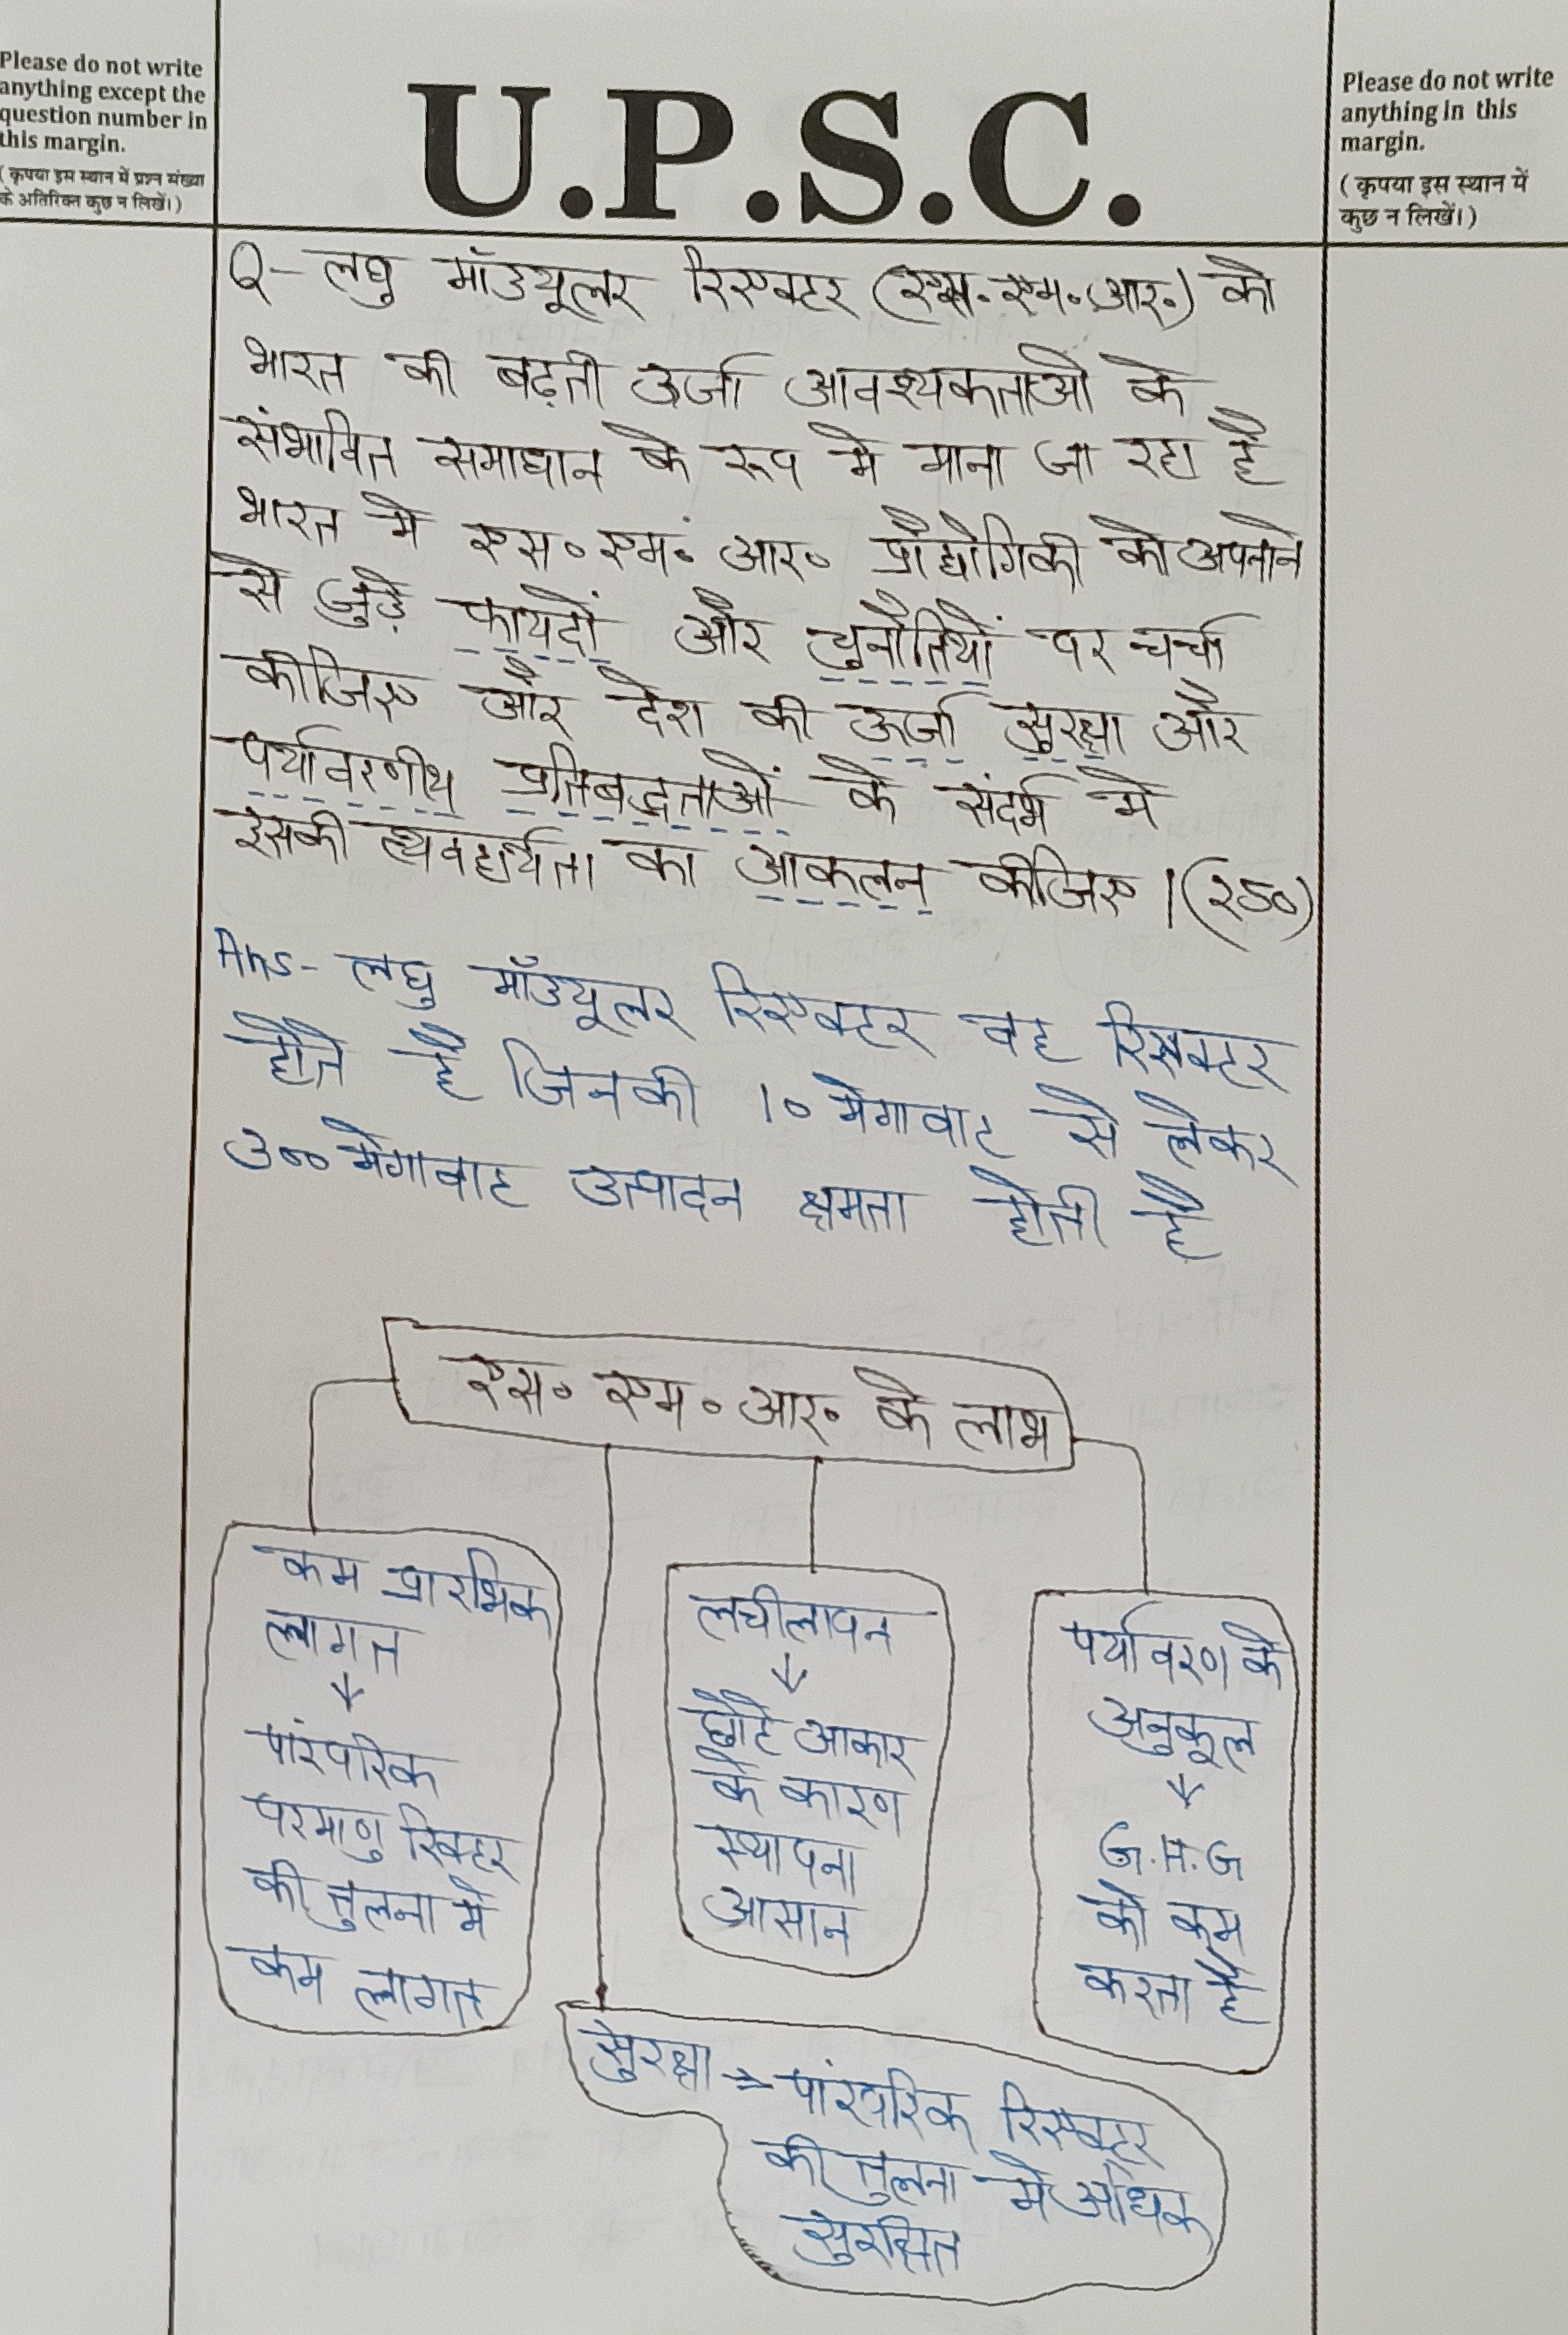 Please do not write
anything except the
question number in
this margin.
( कृपया इस स्थान में प्रश्न संख्या
के अतिरिक्त कुछ न लिखें।)
U.P.S.C.
Please do not write
anything in this
margin.
( कृपया इस स्थान में
कुछ न लिखें।)
Q- लघु मॉड्यूलर रिएक्टर (एस.एम.आर.) को
भारत की बढ़ती ऊर्जा आवश्यकताओ के
संभावित समाधान के रूप मे माना जा रहा है
भारत मे एस॰ एम॰ आर॰ प्रौद्योगिकी को अपनाने
से जुड़े फायदों और चुनौतियों पर चर्चा
कीजिए और देश की ऊर्जा सुरक्षा और
पर्यावरणीय प्रतिबद्धताओं के संदर्भ मे
इसकी व्यवहार्यता का आकलन कीजिए।(250)
Ans- लघु मॉड्यूलर रिएक्टर वह रिएक्टर
होते है जिनकी 10 मेगावाट से लेकर
300 मेगावाट उत्पादन क्षमता होती है
एस॰ एम॰ आर॰ के लाभ
कम प्रारभिक
लागत
↓
पांरपरिक
परमाणु रिक्टर
की तुलना मे
कम लागत
लचीलापन
↓
छोटे आकार
के कारण
स्थापना
आसान
पर्यावरण के
अनुकूल
↓
G.H.G
को कम
करता है
सुरक्षा ⇒ पांरपरिक रिएक्टर
की तुलना मे अधिक
सुरक्षित